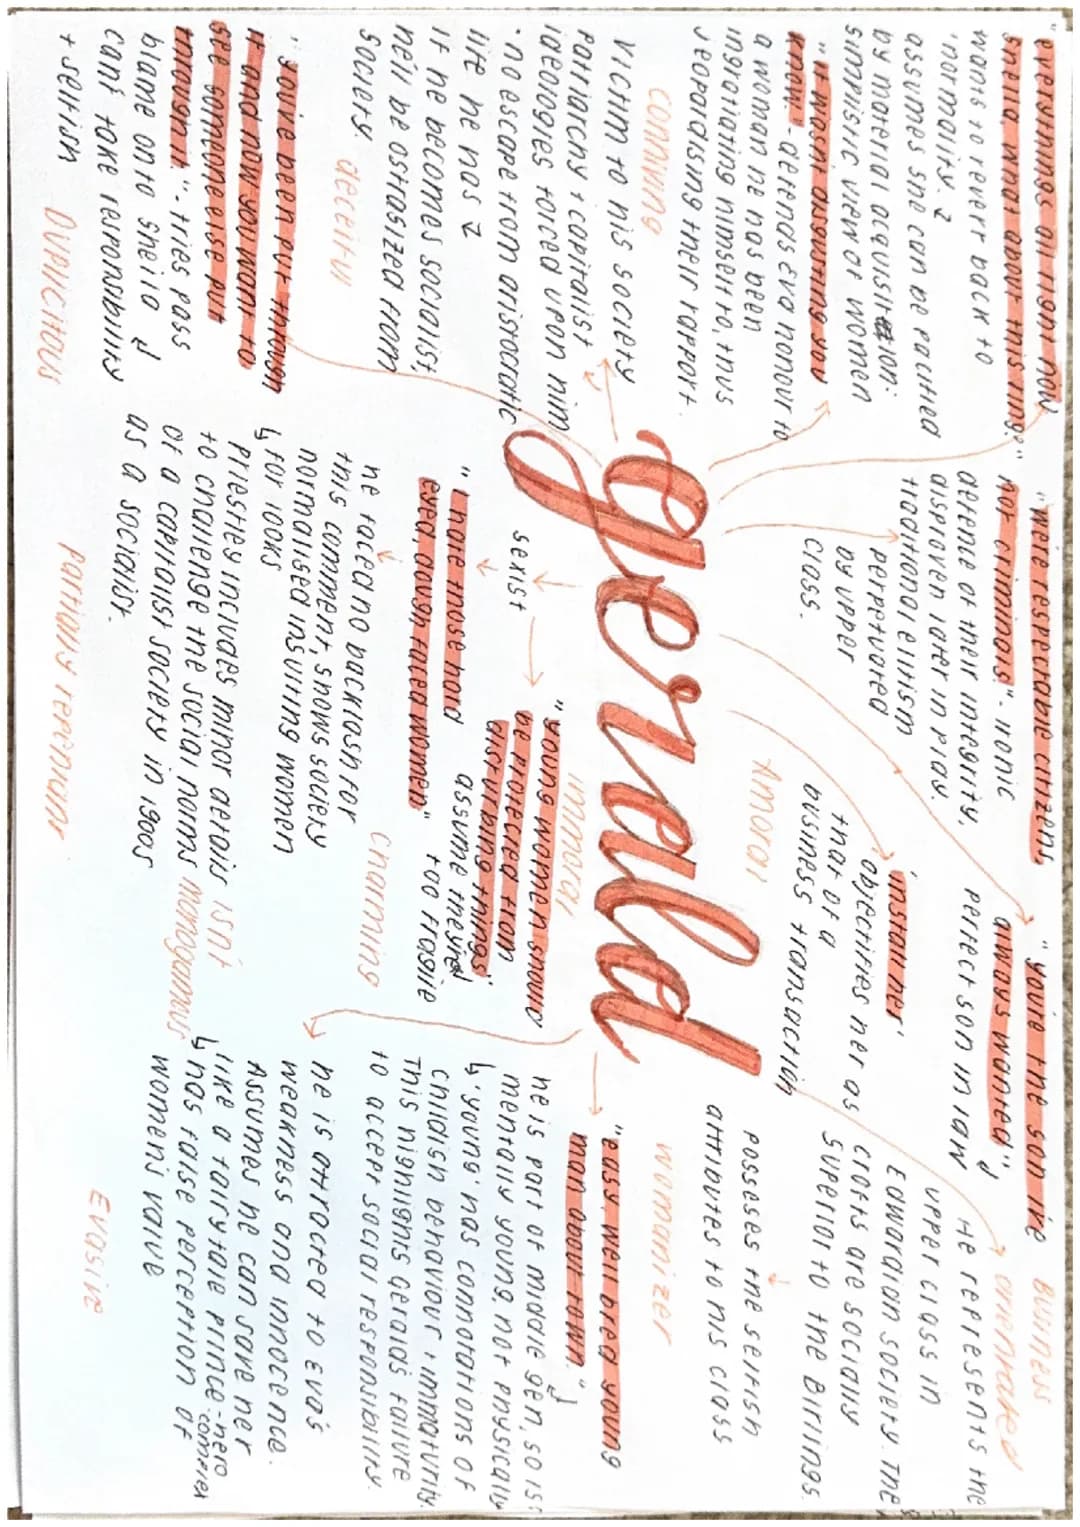 "everythings alright now
sheila, what about this ring?"
wants to revert back to
'normality.'
assumes she can be pacified
by material acquisition.
simplistic view of women
"it would disgusting you
know" - defends Eva honour to
a woman he has been
ingratiating himself to, thus
jeopardising their rapport.
conving
Victim to his society
patriarchy + capitalist
ideologies forced upon him
• no escape from aristocratic
life he has
if he becomes socialist,
he'll be ostrasized from
society
deceitful
"you've been put through
it and now you want to
see someone else put
through it" - tries pass
blame onto sheila
cant take responsibility
+ selfish
Duplicitous
"we're respectable citizens,
not criminals" - ironic
defence of their integrity,
disproven later in play.
traditional elitism
perpetuated
by upper
class.
gerald
sexist
"I hate those hard
eyed, dough faced women"
he faced no backlash for
this comment, shows society
normalised insulting women
↳ for looks
Priestley includes minor details
to challenge the social norms
of a capitalist society in 1900s
as a socialist.
partially repentant
Amoral
immoral
"young women should
be protected from
disturbing things"
assume they're
too fragile
charming
isn't
monogamus
'install her'
objectifies her as
that of a
business transaction
"you're the son i've
always wanted",
perfect son in law
Business
orientated
He represents the
upper class in
Edwardian society. The
Crofts are socially
superior to the Birlings.
posseses the selfish
attributes to his class
womanizer
"easy, well bred young
man about town."
he is part of middle gen, so is
mentally young, not physically
↳ 'young' has connotations of
childish behaviour + immaturity.
This highlights geralds failure
to accept social responsibility.
he is attracted to Eva's
weakness and innocence.
Assumes he can save her
like a fairytale prince - hero complex
↳ has false perception of
womens value
Evasive